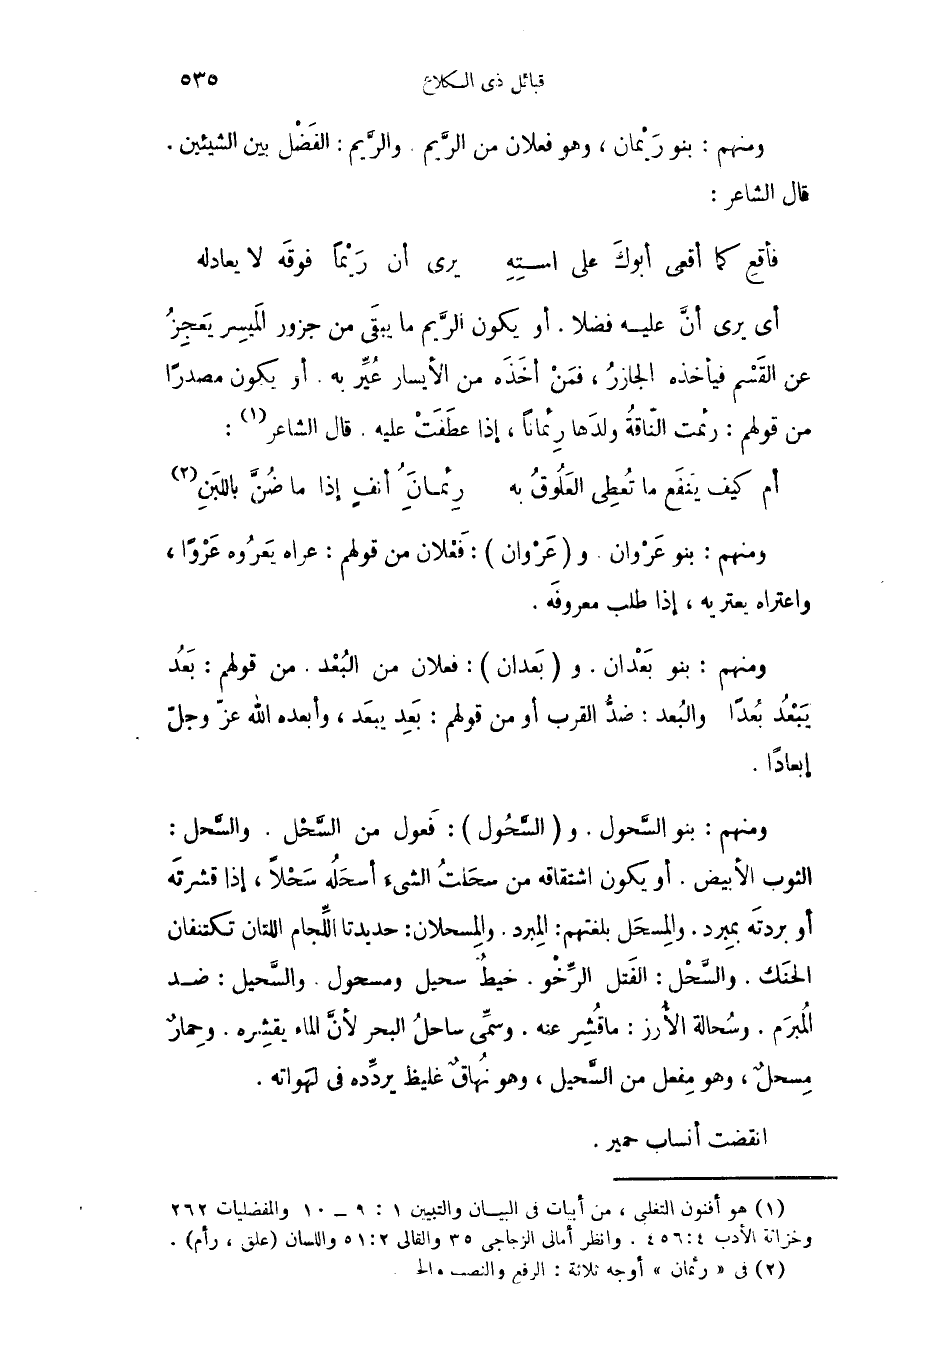 قبائل ذى الكلاع ٥٣٥
ومنهم : بنو رَيْمان ، وهو فعلان من الرَّيم . والرَّيم : الفَضْل بين الشيئين .
قال الشاعر :
فأقعِ كما أقعى أبوكَ على استِهِ يرى أن رَيْماً فوقَه لا يعادله
أى يرى أنَّ عليه فضلا . أو يكون الرَّيم ما يبقَى من جزور المَيسِر يَعجِزُ
عن القَسْم فيأخذه الجازرُ ، فمَنْ أخَذَه من الأيسار عُيِّر به . أو يكون مصدرًا
من قولهم : رئمت النّاقةُ ولدَها رِئْماناً ، إذا عطَفَتْ عليه . قال الشاعر(١) :
أم كيف ينفَع ما تُعطِى العَلُوقُ به رِئمانَُِ أنفٍ إذا ما ضُنَّ باللبَنِ(٢)
ومنهم : بنو عَرْوان . و ( عَرْوان ) : فَعْلان من قولهم : عراه يَعرُوه عَرْوًا ،
واعتراه يعتريه ، إذا طلب معروفَه .
ومنهم : بنو بَعْدان . و ( بَعدان ) : فعلان من البُعْد . من قولهم : بَعُد
يَبْعُد بُعدًا والبُعد : ضدُّ القرب أو من قولهم : بَعِد يبعَد ، وأبعده الله عزّ وجلّ
إبعادًا .
ومنهم : بنو السَّحول . و ( السَّحُول ) : فَعول من السَّحْل . والسَّحل :
الثوب الأبيض . أو يكون اشتقاقه من سحَلتُ الشىء أسحَلُه سَحْلاً ، إذا قشرتَه
أو بردتَه بمِبرد . والمِسحَل بلغتهم : المِبرد . والمِسحلان : حديدتا اللِّجام اللتان تكتنفان
الحنَك . والسَّحْل : الفَتل الرِّخْو . خيطٌ سحيل ومسحول . والسَّحيل : ضد
المُبرَم . وسُحالة الأُرز : ماقُشِر عنه . وسمِّى ساحلُ البحر لأنَّ الماء يقشِره . وحمارٌ
مِسحلٌ ، وهو مِفعل من السَّحيل ، وهو نُهاقٌ غليظ يردِّده فى لهَواته .
انقضت أنساب حمير .
(١) هو أفنون التغلبى ، من أبيات فى البيان والتبيين ١ : ٩ _ ١٠ والمفضليات ٢٦٢
وخزانة الأدب ٤ : ٤٥٦ . وانظر أمالى الزجاجى ٣٥ والقالى ٢ : ٥١ واللسان (علق ، رأم) .
(٢) فى « رئمان » أوجه ثلاثة : الرفع والنصب